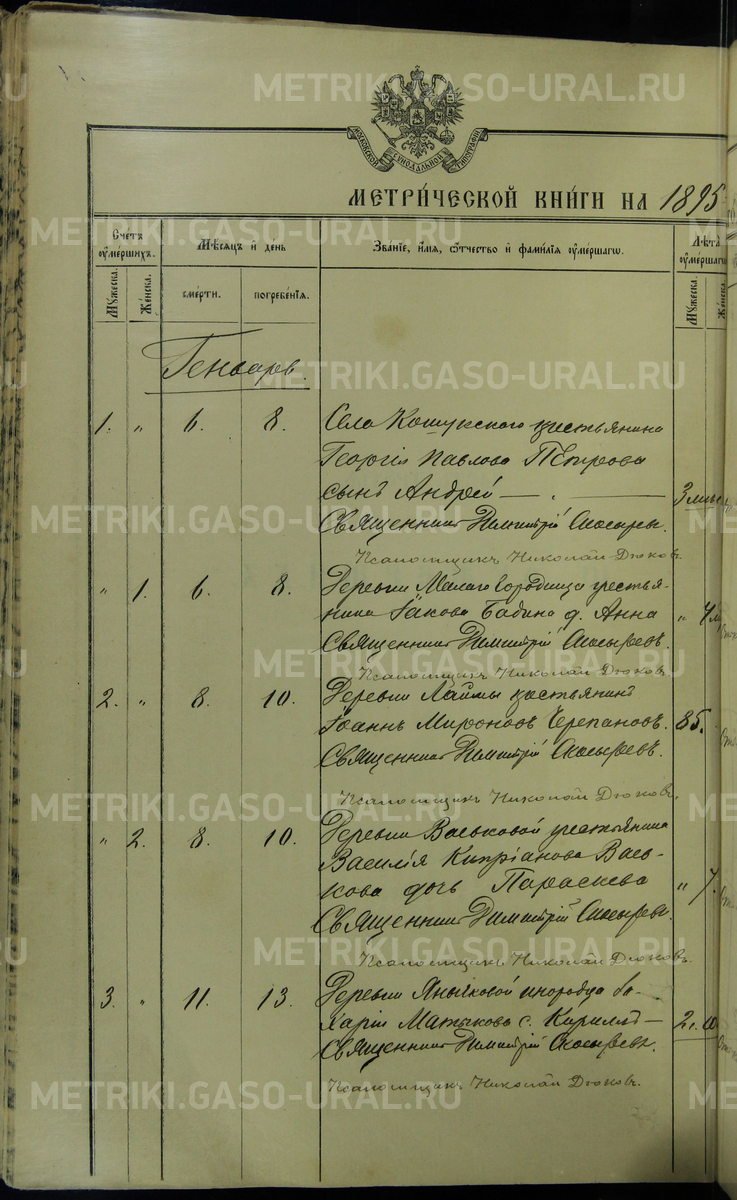 МОСКОВСКОЙ СѴНОДАЛЬНОЙ ТИПОГРАФІИ
МЕТРИ́ЧЕСКОЙ КНИ́ГИ НА 1895
Счетъ оумершихъ.
Мѣсяцъ и день
Званіе, имя, отчество и фамилія оумершагѡ.
Лѣта оумершагѡ
Мужеска.
Женска.
смерти.
погребенія.
Мужеска.
Женска.
Генварь.
1. " 6. 8. Села Кошукскаго крестьянина
Георгія Павлова Петрова
сынъ Андрей — " — 3 мѣс
Священникъ Димитрій Скосырев
Псаломщикъ Николай Дюков.
" 1. 6. 8. Деревни Малаго Городища крестья-
нина Іакова Бабина д. Анна " 4
Священникъ Димитрій Скосыревъ.
Псаломщикъ Николай Дюковъ.
2. " 8. 10. Деревни Лаймы крестьянинъ
Іоаннъ Мироновъ Черепановъ. 85.
Священникъ Димитрій Скосыревъ.
Псаломщикъ Николай Дюковъ.
" 2. 8. 10. Деревни Васьковой крестьянина
Василія Кипріанова Вась-
кова дочь Параскева " 7.
Священникъ Димитрій Скосыревъ.
Псаломщикъ Николай Дюковъ.
3. " 11. 13. Деревни Янычковой инородца За-
харіи Матыкова с. Кириллъ — 2.
Священникъ Димитрій Скосыревъ.
Псаломщикъ Николай Дюковъ.
METRIKI.GASO-URAL.RU